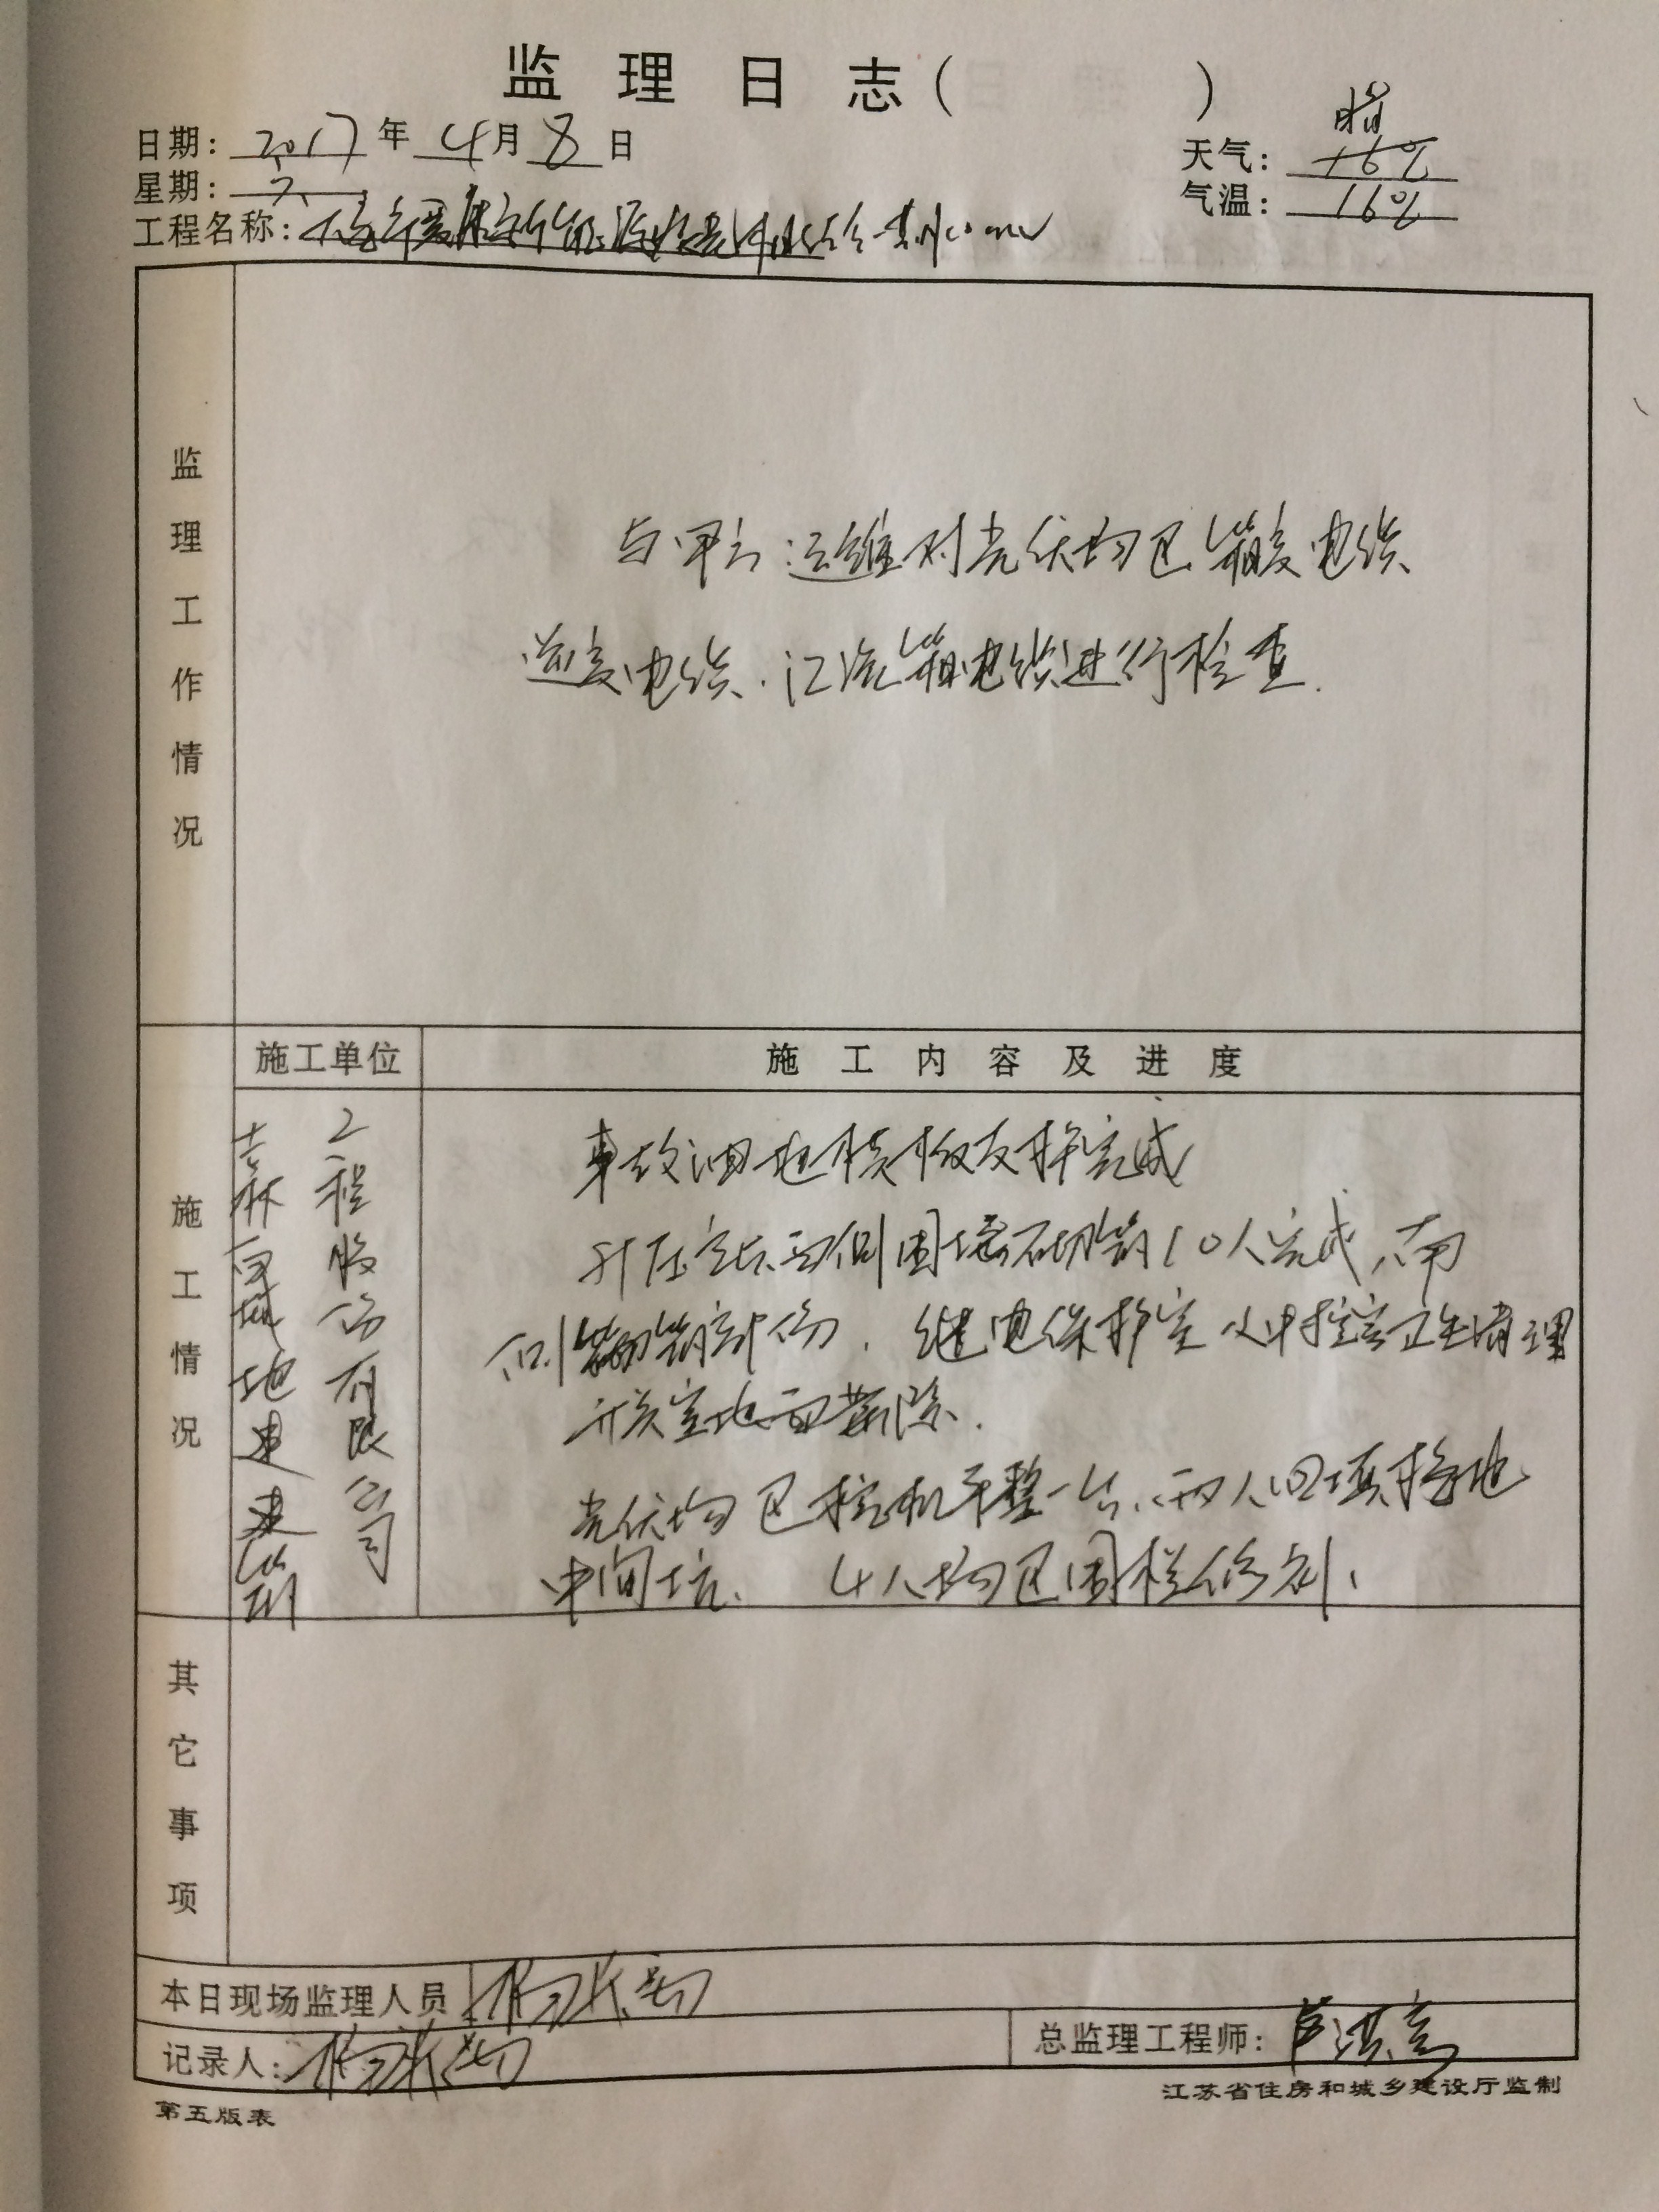 监理日志(　　)
日期：2017年4月8日
天气：晴
星期：六
气温：16℃
工程名称：
监理工作情况
与甲方运维对光伏场区箱变电缆
逆变电缆.汇流箱电缆进行检查.
施工情况
施工单位
施工内容及进度
吉林百城地建建筑
工程股份有限公司
事故油池模板支护完成
升压站西侧围墙砌筑10人完成,南
侧砌筑部份.继电保护室及中控室卫生清理
开关室地面凿除.
光伏场区挖机平整一台,两人回填接地
中间坑.4人场区围栏修补,
其它事项
本日现场监理人员
记录人:
总监理工程师:
江苏省住房和城乡建设厅监制
第五版表